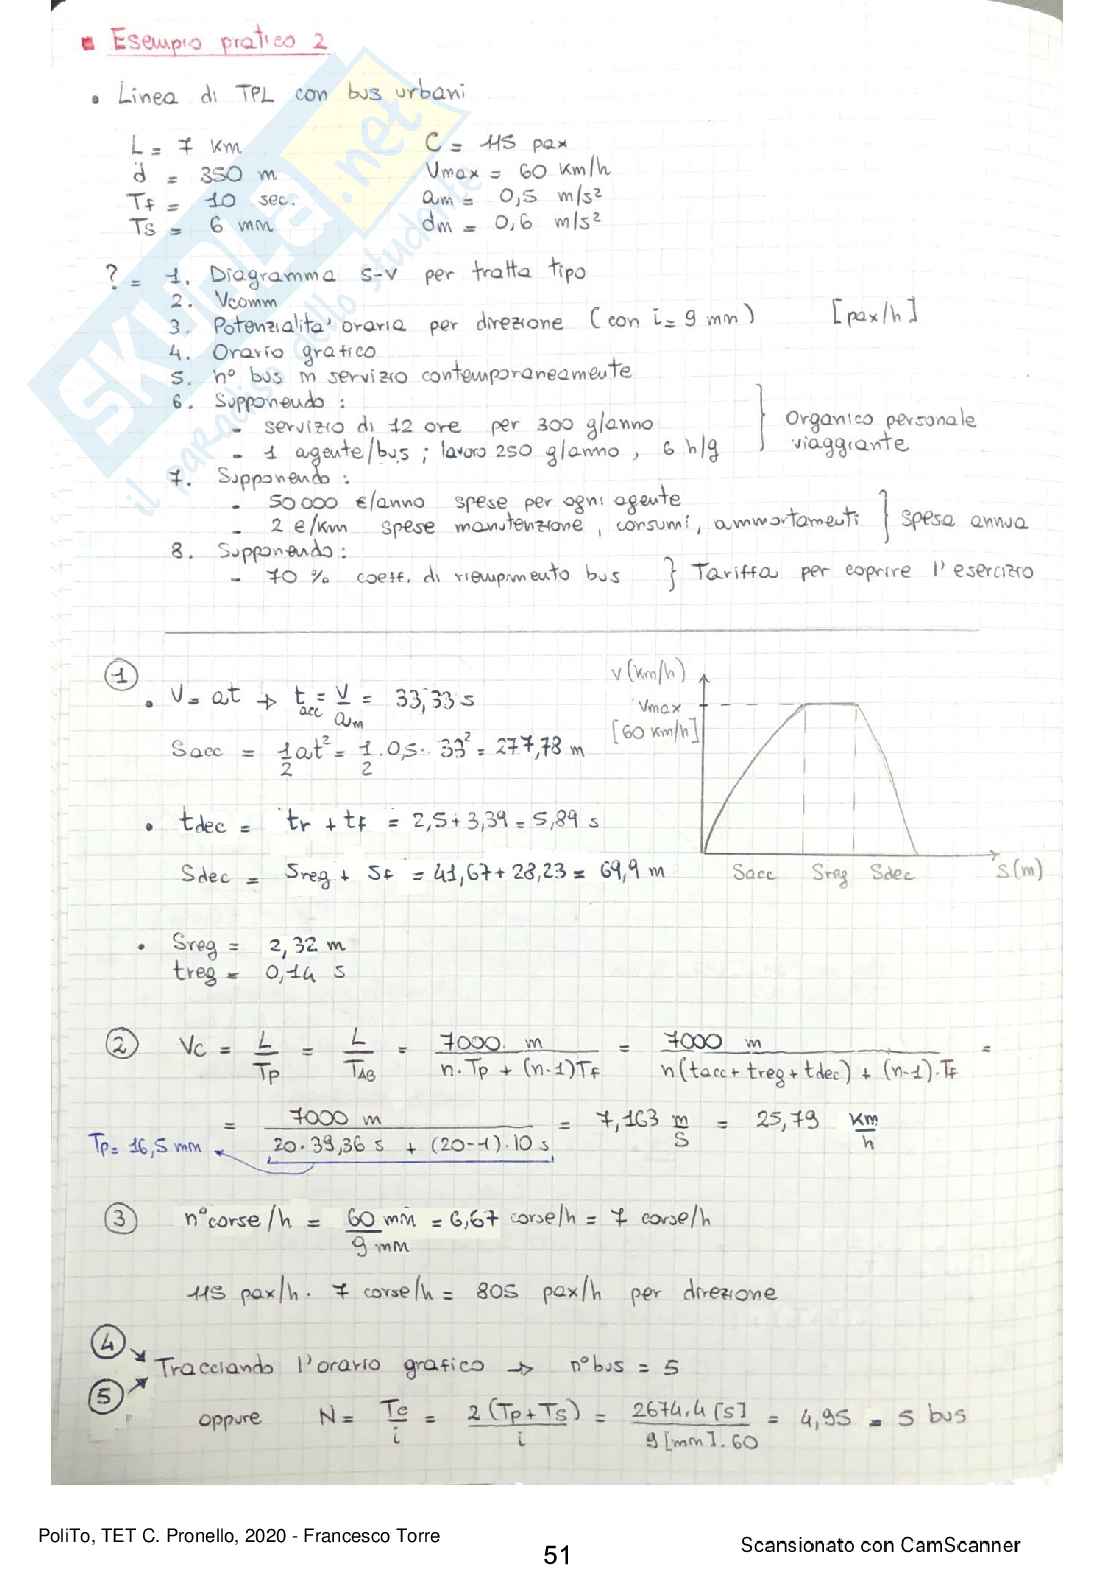 Esempio pratico 2
• Linea di TPL con bus urbani
L = 7 Km
C = 115 pax
d = 350 m
Vmax = 60 Km/h
Tf = 10 sec.
am = 0,5 m/s²
Ts = 6 min
dm = 0,6 m/s²
? = 1. Diagramma s-v per tratta tipo
2. Vcomm
3. Potenzialita' oraria per direzione (con i = 9 min) [pax/h]
4. Orario grafico
5. n° bus in servizio contemporaneamente
6. Supponendo :
- servizio di 12 ore per 300 g/anno
- 1 agente/bus ; lavoro 250 g/anno , 6 h/g
} Organico personale viaggiante
7. Supponendo :
- 50 000 €/anno spese per ogni agente
- 2 €/km spese manutenzione , consumi, ammortamenti } spesa annua
8. Supponendo :
- 70 % coeff. di riempimento bus } Tariffa per coprire l'esercizio
1
• V = at → t acc = V/am = 33,33 s
Sacc = 1/2 at² = 1/2 · 0,5 · 33² = 277,78 m
• tdec = tr + tf = 2,5 + 3,39 = 5,89 s
Sdec = Sreg + Sf = 41,67 + 28,23 = 69,9 m
V (Km/h)
Vmax
[60 Km/h]
Sacc Sreg Sdec S(m)
• Sreg = 2,32 m
treg = 0,14 s
2 Vc = L/Tp = L/TAB = 7000 m / n·Tp + (n-1)Tf = 7000 m / n(tacc + treg + tdec) + (n-1)·Tf =
= 7000 m / 20·39,36 s + (20-1)·10 s = 7,163 m/s = 25,79 Km/h
Tp = 16,5 min
3 n°corse/h = 60 min / 9 min = 6,67 corse/h = 7 corse/h
115 pax/h · 7 corse/h = 805 pax/h per direzione
4
Tracciando l'orario grafico → n° bus = 5
5
oppure N = Tc/i = 2(Tp+Ts)/i = 2674,4 [s] / 9 [min]·60 = 4,95 = 5 bus
SKUOLA.net
il paradiso dello studente
PoliTo, TET C. Pronello, 2020 - Francesco Torre
51
Scansionato con CamScanner